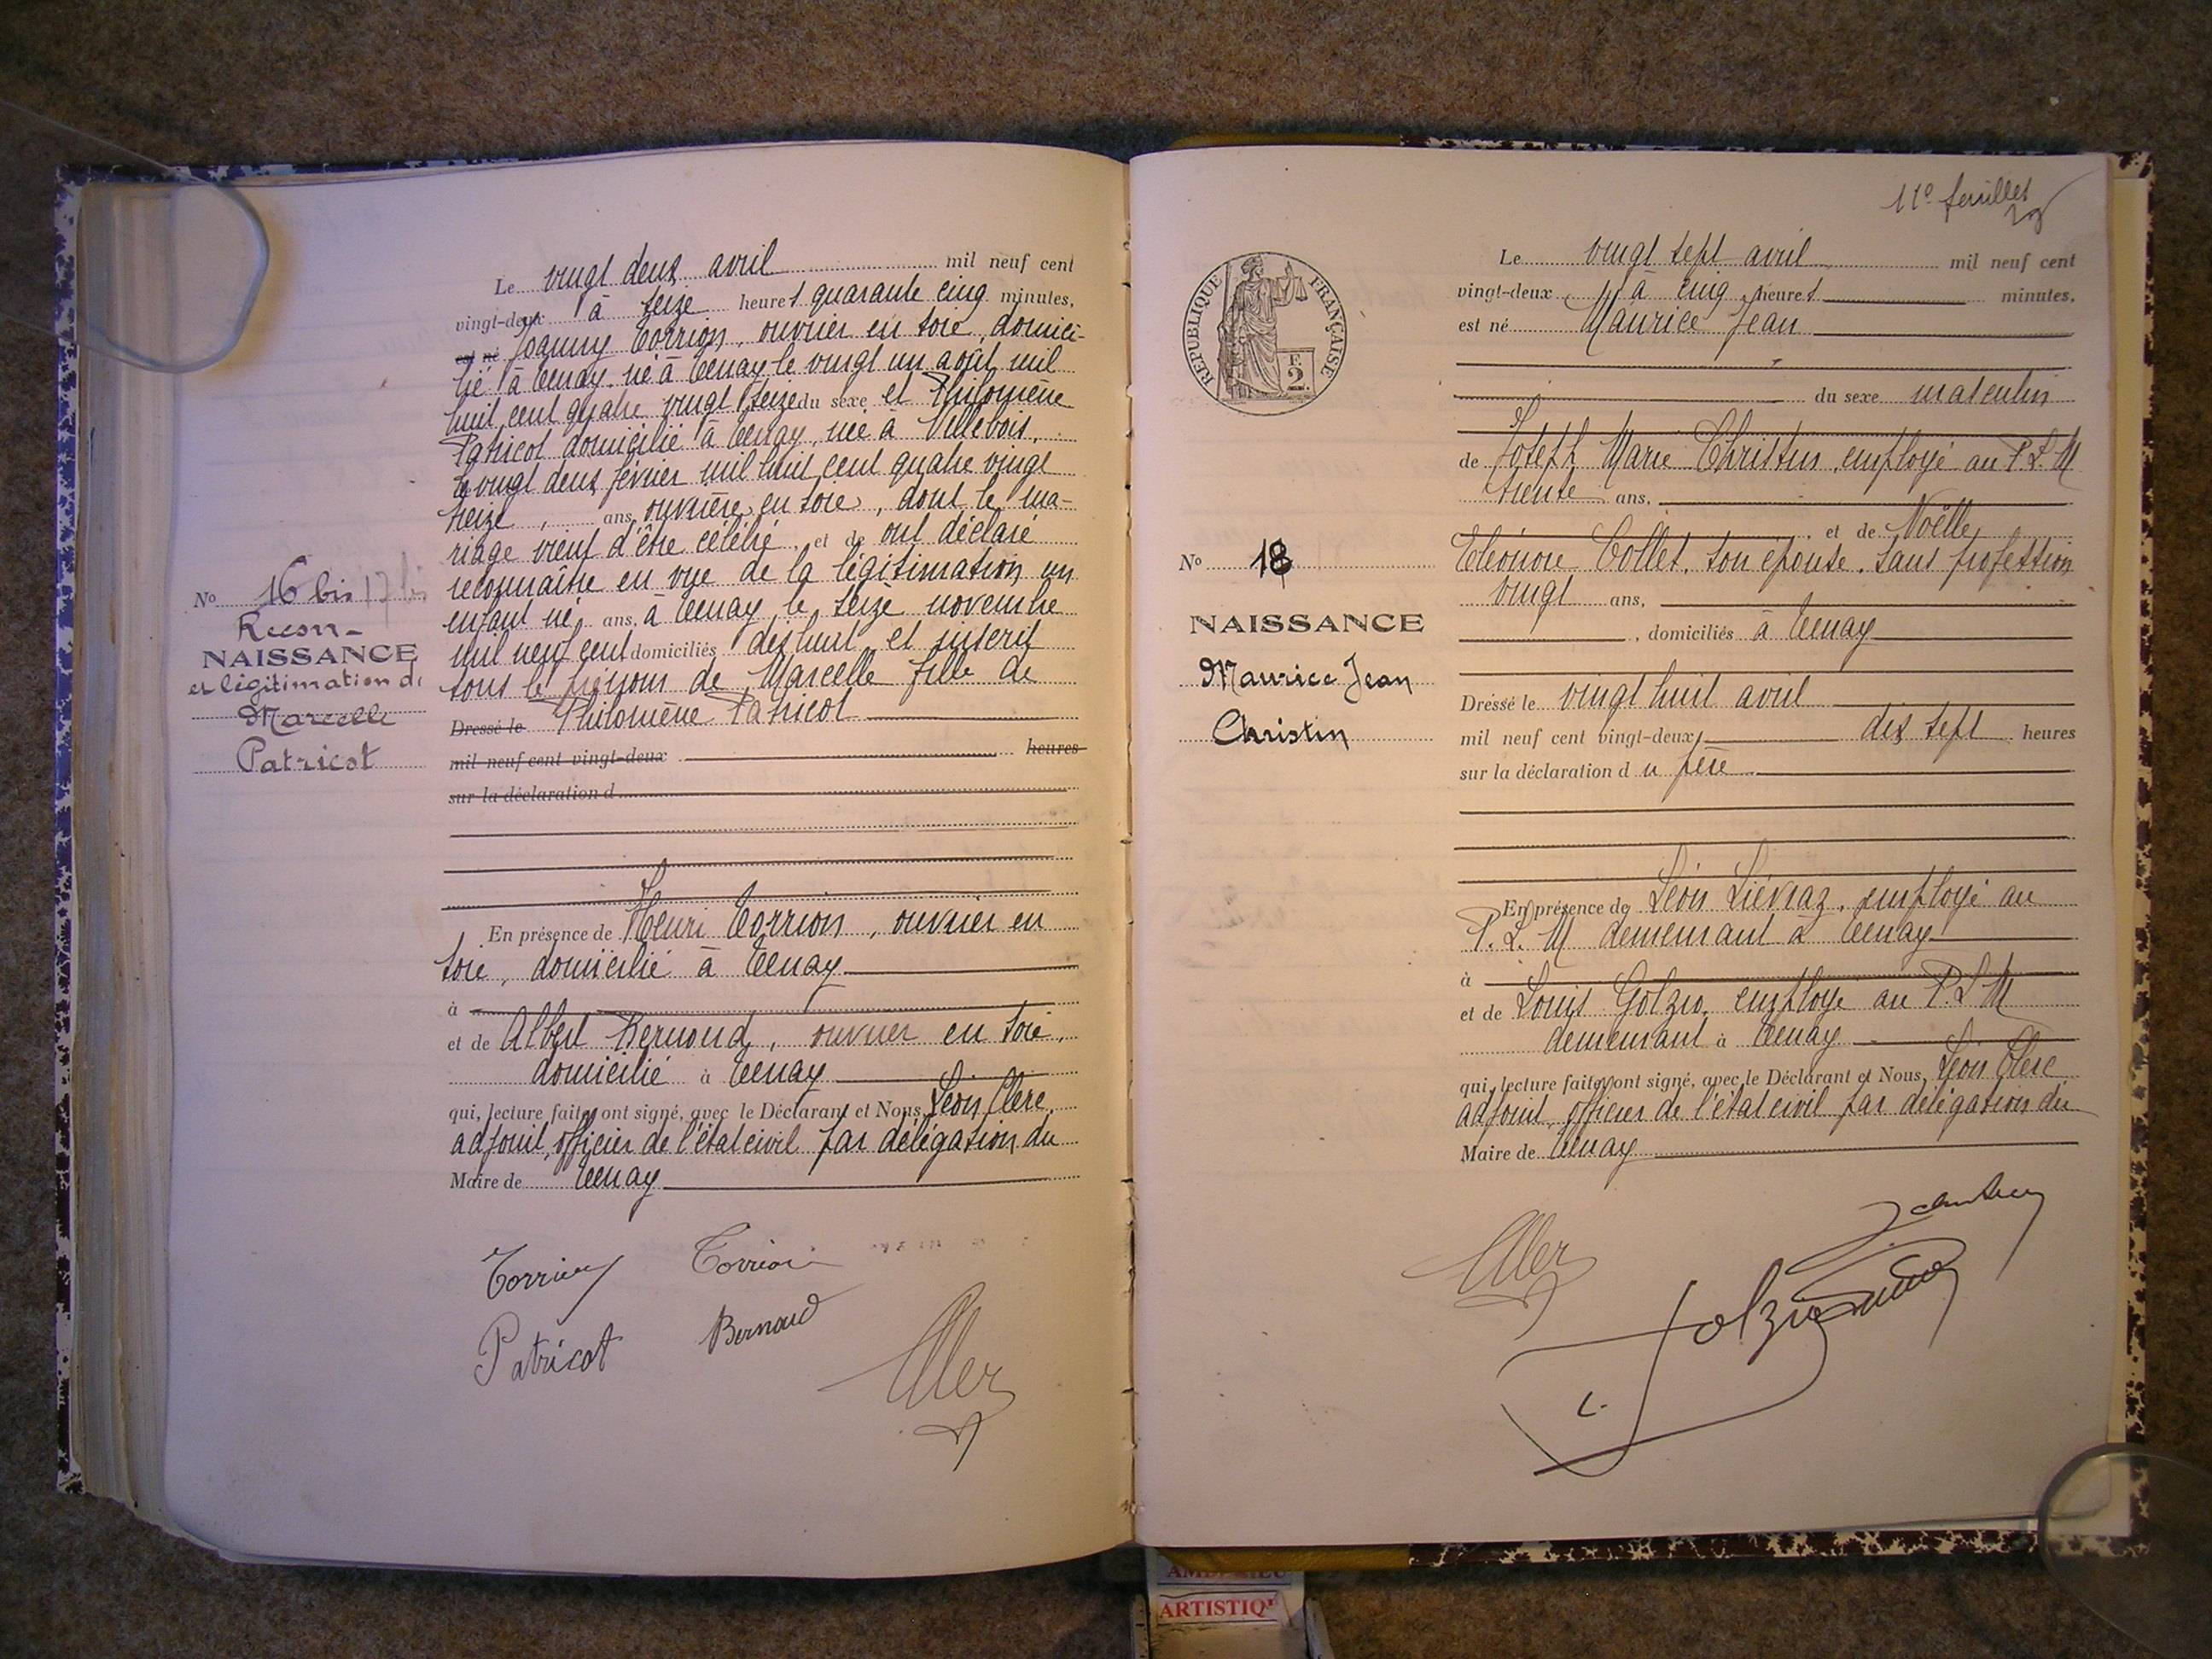 Le vingt deux avril mil neuf cent
vingt-deux à seize heures quarante cinq minutes,
est né Joanny Torrion, ouvrier en soie, domici-
lié à Tenay, né à Tenay le vingt un août mil
huit cent quatre vingt seize du sexe et Philomène
Patricot domicilié à Tenay, née à Villebois,
le vingt deux février mil huit cent quatre vingt
seize, ans, ouvrière en soie, dont le ma-
riage vient d'être célébré, et de ont déclaré
reconnaître en vue de la légitimation un
enfant né, ans, à Tenay le seize novembre
mil neuf cent domiciliés dix huit et inscrit
sous le prénom de Marcelle fille de
Dressé le Philomène Patricot
mil neuf cent vingt-deux heures
sur la déclaration d
No 16 bis 17 bis
Recon-
NAISSANCE
et légitimation de
Marcelle
Patricot
En présence de Henri Torrion, ouvrier en
soie, domicilié à Tenay
à
et de Albert Bernond, ouvrier en soie,
domicilié à Tenay
qui, lecture faite, ont signé, avec le Déclarant et Nous, Léon Clerc,
adjoint, officier de l'état civil par délégation du
Maire de Tenay
Torrion Torrion
Patricot Bernond
11e feuillet
REPUBLIQUE FRANÇAISE
E
2
Le vingt sept avril mil neuf cent
vingt-deux à cinq heures minutes,
est né Maurice Jean
du sexe masculin
de Joseph Marie Christin, employé au P.L.M
trente ans,
et de Noëlle
Eléonore Collet, son épouse, sans profession
vingt ans,
, domiciliés à Tenay
No 18
NAISSANCE
Maurice Jean
Christin
Dressé le vingt huit avril
mil neuf cent vingt-deux, dix sept heures
sur la déclaration du père
En présence de Léon Liévraz, employé au
P.L.M demeurant à Tenay
à
et de Louis Golzio, employé au P.L.M
demeurant à Tenay
qui, lecture faite, ont signé, avec le Déclarant et Nous, Léon Clerc
adjoint, officier de l'état civil par délégation du
Maire de Tenay
Golzio
L.
ARTISTIQ